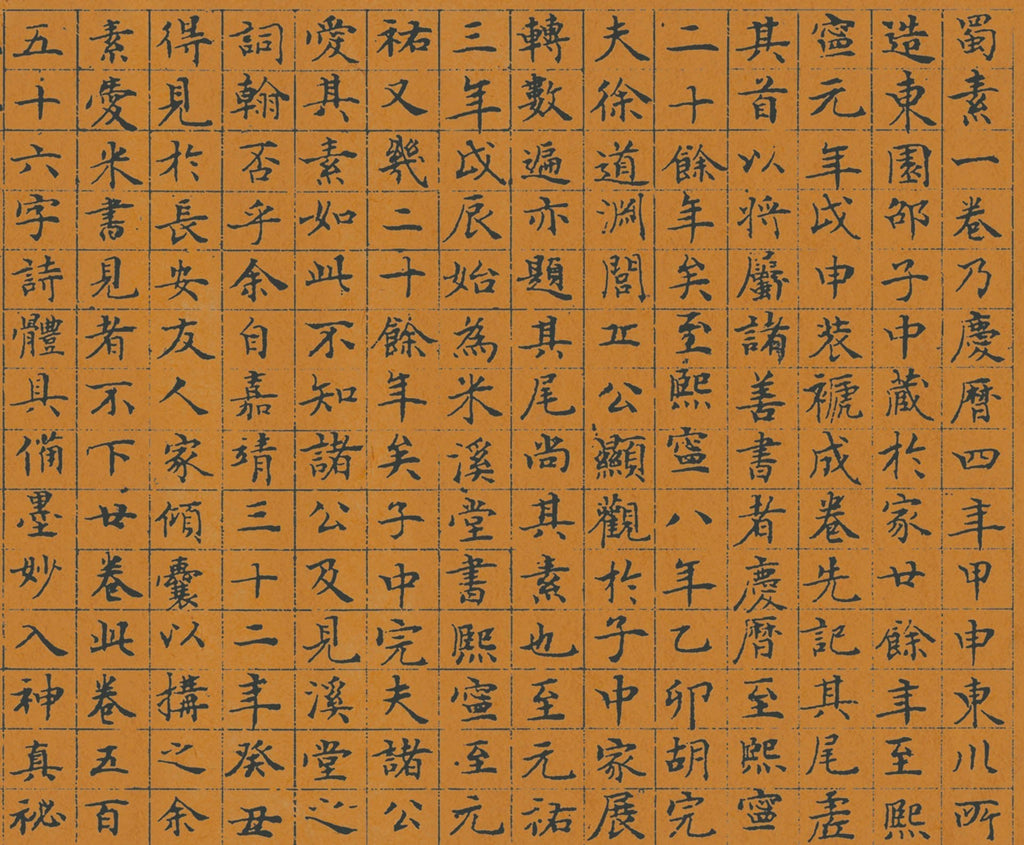 蜀素一卷乃慶曆四年甲申東川所
造東園邵子中藏於家廿餘年至熙
寧元年戊申裝褫成卷先記其尾虛
其首以將屬諸善書者慶曆至熙寧
二十餘年矣至熙寧八年乙卯胡完
夫徐道淵閭丘公顯觀於子中家展
轉數遍亦題其尾尚其素也至元祐
三年戊辰始為米溪堂書熙寧至元
祐又幾二十餘年矣子中完夫諸公
愛其素如此不知諸公及見溪堂之
詞翰否乎余自嘉靖三十二年癸丑
得見於長安友人家傾囊以搆之余
素愛米書見者不下廿卷此卷五百
五十六字詩體具備墨妙入神真秘